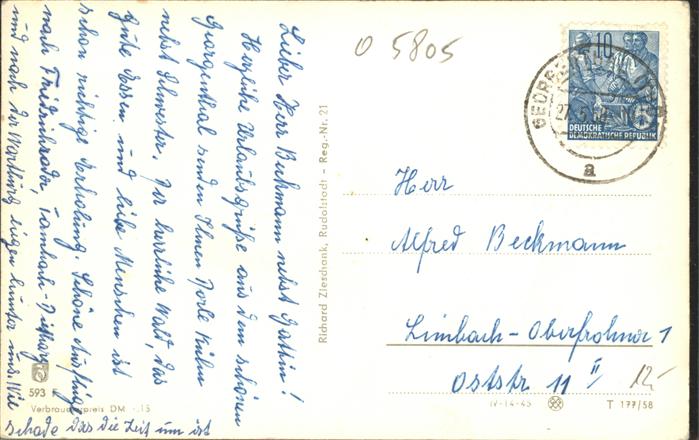 Lieber Herr Beckmann nebst Gattin!
Herzliche Urlaubsgrüße aus dem schönen
Georgenthal senden Ihnen Dorle Kühn
nebst Schwester. Der herrliche Wald, das
gute Essen und liebe Menschen ist
schon richtige Erholung. Schöne Ausflüge
nach Friedrichroda, Tambach-Dietharz
und nach der Wartburg liegen hinter uns. Wie
schade das die Zeit um ist
593 F
Verbraucherpreis DM -.15
Richard Zieschank, Rudolstadt - Reg.-Nr. 21
0 5805
10
DEUTSCHE
DEMOKRATISCHE REPUBLIK
a
Herr
Alfred Beckmann
Limbach-Oberfrohna 1
Oststr 11 II
12.-
IV-14-45
T 177/58